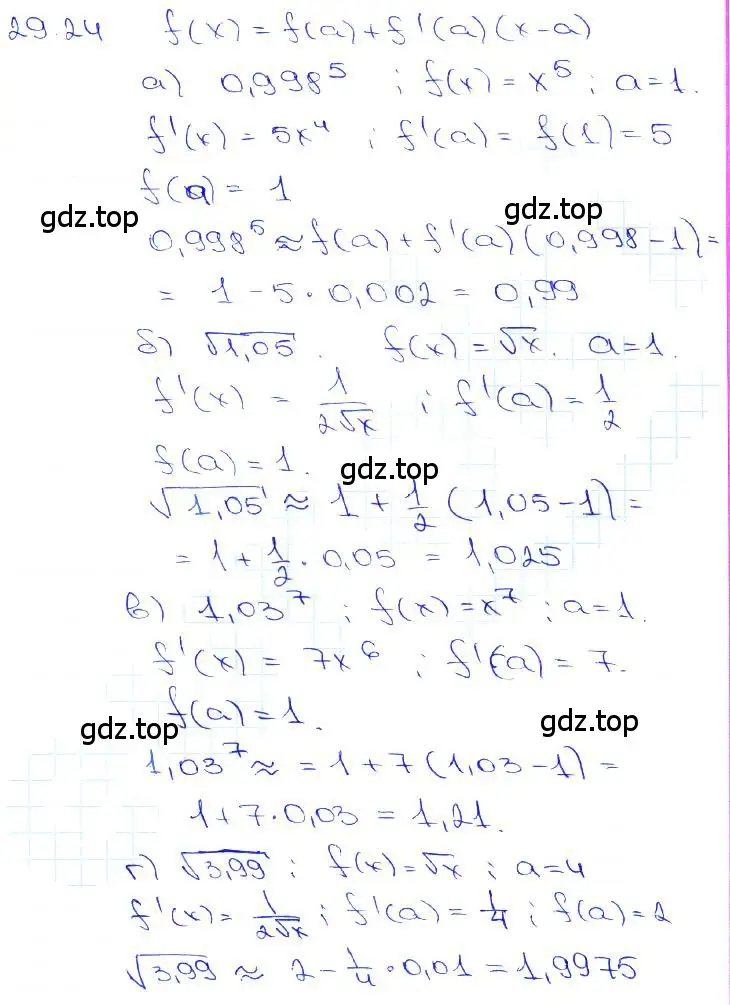 29.24 f(x) = f(a) + f'(a)(x-a)
а) 0,998⁵ ; f(x) = x⁵ ; a=1.
f'(x) = 5x⁴ ; f'(a) = f(1) = 5
f(a) = 1
gdz.top
gdz.top
0,998⁵ ≈ f(a) + f'(a)(0,998-1) =
= 1 - 5 · 0,002 = 0,99
б) √1,05 . f(x) = √x. a=1.
f'(x) = 1/(2√x) ; f'(a) = 1/2
f(a) = 1.
gdz.top
√1,05 ≈ 1 + 1/2 (1,05-1) =
= 1 + 1/2 · 0,05 = 1,025
в) 1,03⁷ ; f(x) = x⁷ ; a=1.
f'(x) = 7x⁶ ; f'(a) = 7.
f(a) = 1.
gdz.top
gdz.top
1,03⁷ ≈ = 1 + 7(1,03-1) =
1 + 7 · 0,03 = 1,21.
г) √3,99 ; f(x) = √x ; a=4
f'(x) = 1/(2√x) ; f'(a) = 1/4 ; f(a) = 2
√3,99 ≈ 2 - 1/4 · 0,01 = 1,9975